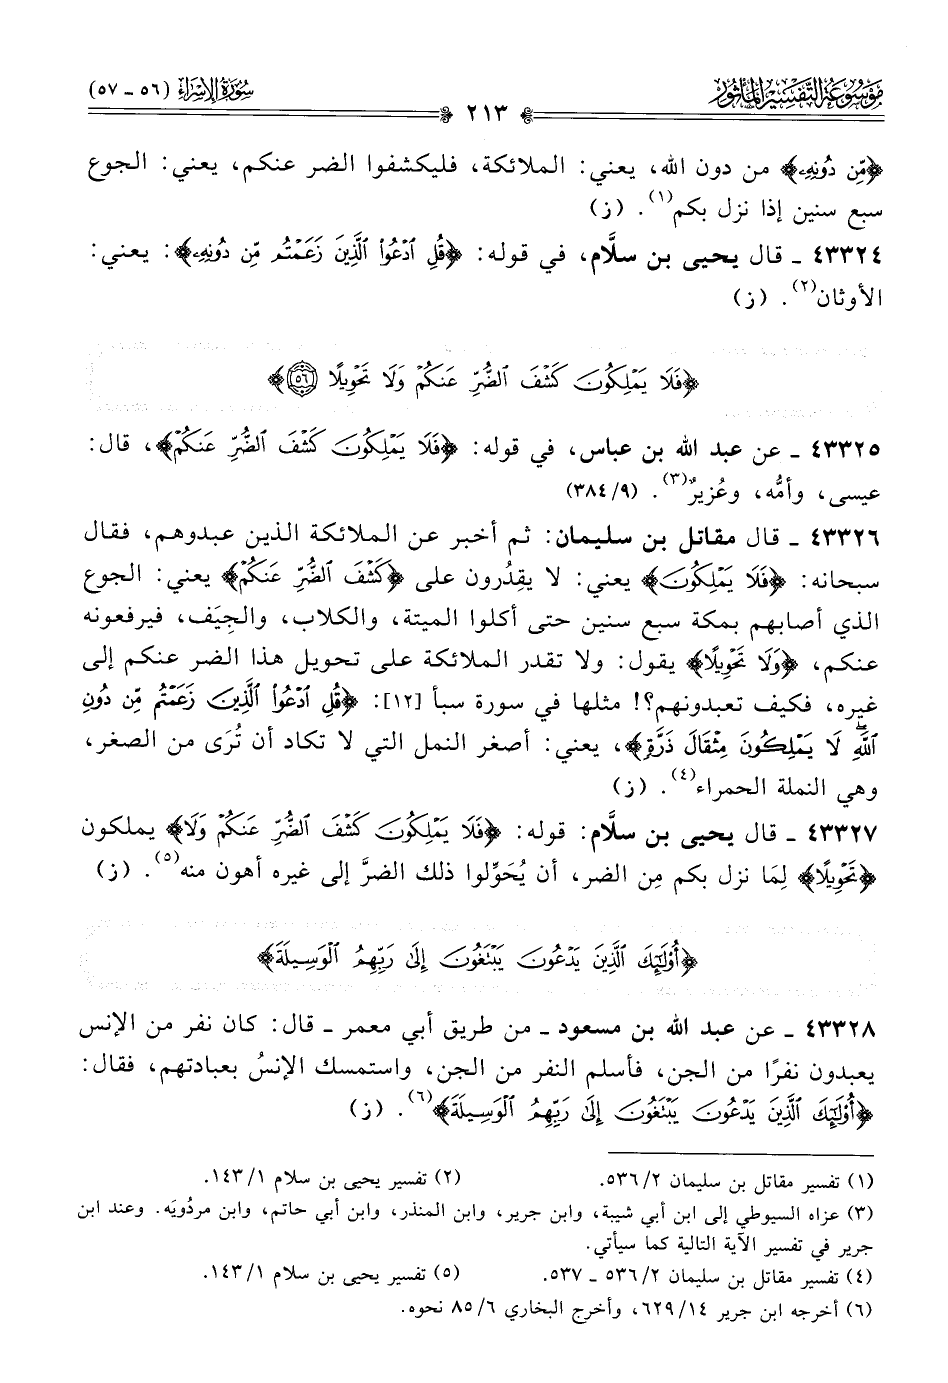 مَوْسُوعَة التَّفْسِير المَأْثُور
٢١٣
سُورَةُ الإِسْرَاء (٥٦ - ٥٧)
﴿مِّن دُونِهِۦ﴾ من دون الله، يعني: الملائكة، فليكشفوا الضر عنكم، يعني: الجوع
سبع سنين إذا نزل بكم(١). (ز)
٤٣٣٢٤ ـ قال يحيى بن سلَّام، في قوله: ﴿قُلِ ٱدْعُوا۟ ٱلَّذِينَ زَعَمْتُم مِّن دُونِهِۦ﴾: يعني:
الأوثان(٢). (ز)
﴿فَلَا يَمْلِكُونَ كَشْفَ ٱلضُّرِّ عَنكُمْ وَلَا تَحْوِيلًا ٥٦﴾
٤٣٣٢٥ ـ عن عبد الله بن عباس، في قوله: ﴿فَلَا يَمْلِكُونَ كَشْفَ ٱلضُّرِّ عَنكُمْ﴾، قال:
عيسى، وأمُّه، وعُزيرٌ(٣). (٩/ ٣٨٤)
٤٣٣٢٦ ـ قال مقاتل بن سليمان: ثم أخبر عن الملائكة الذين عبدوهم، فقال
سبحانه: ﴿فَلَا يَمْلِكُونَ﴾ يعني: لا يقدِرون على ﴿كَشْفَ ٱلضُّرِّ عَنكُمْ﴾ يعني: الجوع
الذي أصابهم بمكة سبع سنين حتى أكلوا الميتة، والكلاب، والجِيَف، فيرفعونه
عنكم، ﴿وَلَا تَحْوِيلًا﴾ يقول: ولا تقدر الملائكة على تحويل هذا الضر عنكم إلى
غيره، فكيف تعبدونهم؟! مثلها في سورة سبأ [١٢]: ﴿قُلِ ٱدْعُوا۟ ٱلَّذِينَ زَعَمْتُم مِّن دُونِ
ٱللَّهِۖ لَا يَمْلِكُونَ مِثْقَالَ ذَرَّةٍ﴾، يعني: أصغر النمل التي لا تكاد أن تُرَى من الصغر،
وهي النملة الحمراء(٤). (ز)
٤٣٣٢٧ ـ قال يحيى بن سلَّام: قوله: ﴿فَلَا يَمْلِكُونَ كَشْفَ ٱلضُّرِّ عَنكُمْ وَلَا﴾ يملكون
﴿تَحْوِيلًا﴾ لِمَا نزل بكم مِن الضر، أن يُحَوِّلوا ذلك الضرَّ إلى غيره أهون منه(٥). (ز)
﴿أُو۟لَٰٓئِكَ ٱلَّذِينَ يَدْعُونَ يَبْتَغُونَ إِلَىٰ رَبِّهِمُ ٱلْوَسِيلَةَ﴾
٤٣٣٢٨ ـ عن عبد الله بن مسعود ـ من طريق أبي معمر ـ قال: كان نفر من الإنس
يعبدون نفرًا من الجن، فأسلم النفر من الجن، واستمسك الإنسُ بعبادتهم، فقال:
﴿أُو۟لَٰٓئِكَ ٱلَّذِينَ يَدْعُونَ يَبْتَغُونَ إِلَىٰ رَبِّهِمُ ٱلْوَسِيلَةَ﴾(٦). (ز)
(١) تفسير مقاتل بن سليمان ٢/ ٥٣٦. (٢) تفسير يحيى بن سلام ١/ ١٤٣.
(٣) عزاه السيوطي إلى ابن أبي شيبة، وابن جرير، وابن المنذر، وابن أبي حاتم، وابن مردُويَه. وعند ابن
جرير في تفسير الآية التالية كما سيأتي.
(٤) تفسير مقاتل بن سليمان ٢/ ٥٣٦ ـ ٥٣٧. (٥) تفسير يحيى بن سلام ١/ ١٤٣.
(٦) أخرجه ابن جرير ١٤/ ٦٢٩، وأخرج البخاري ٦/ ٨٥ نحوه.